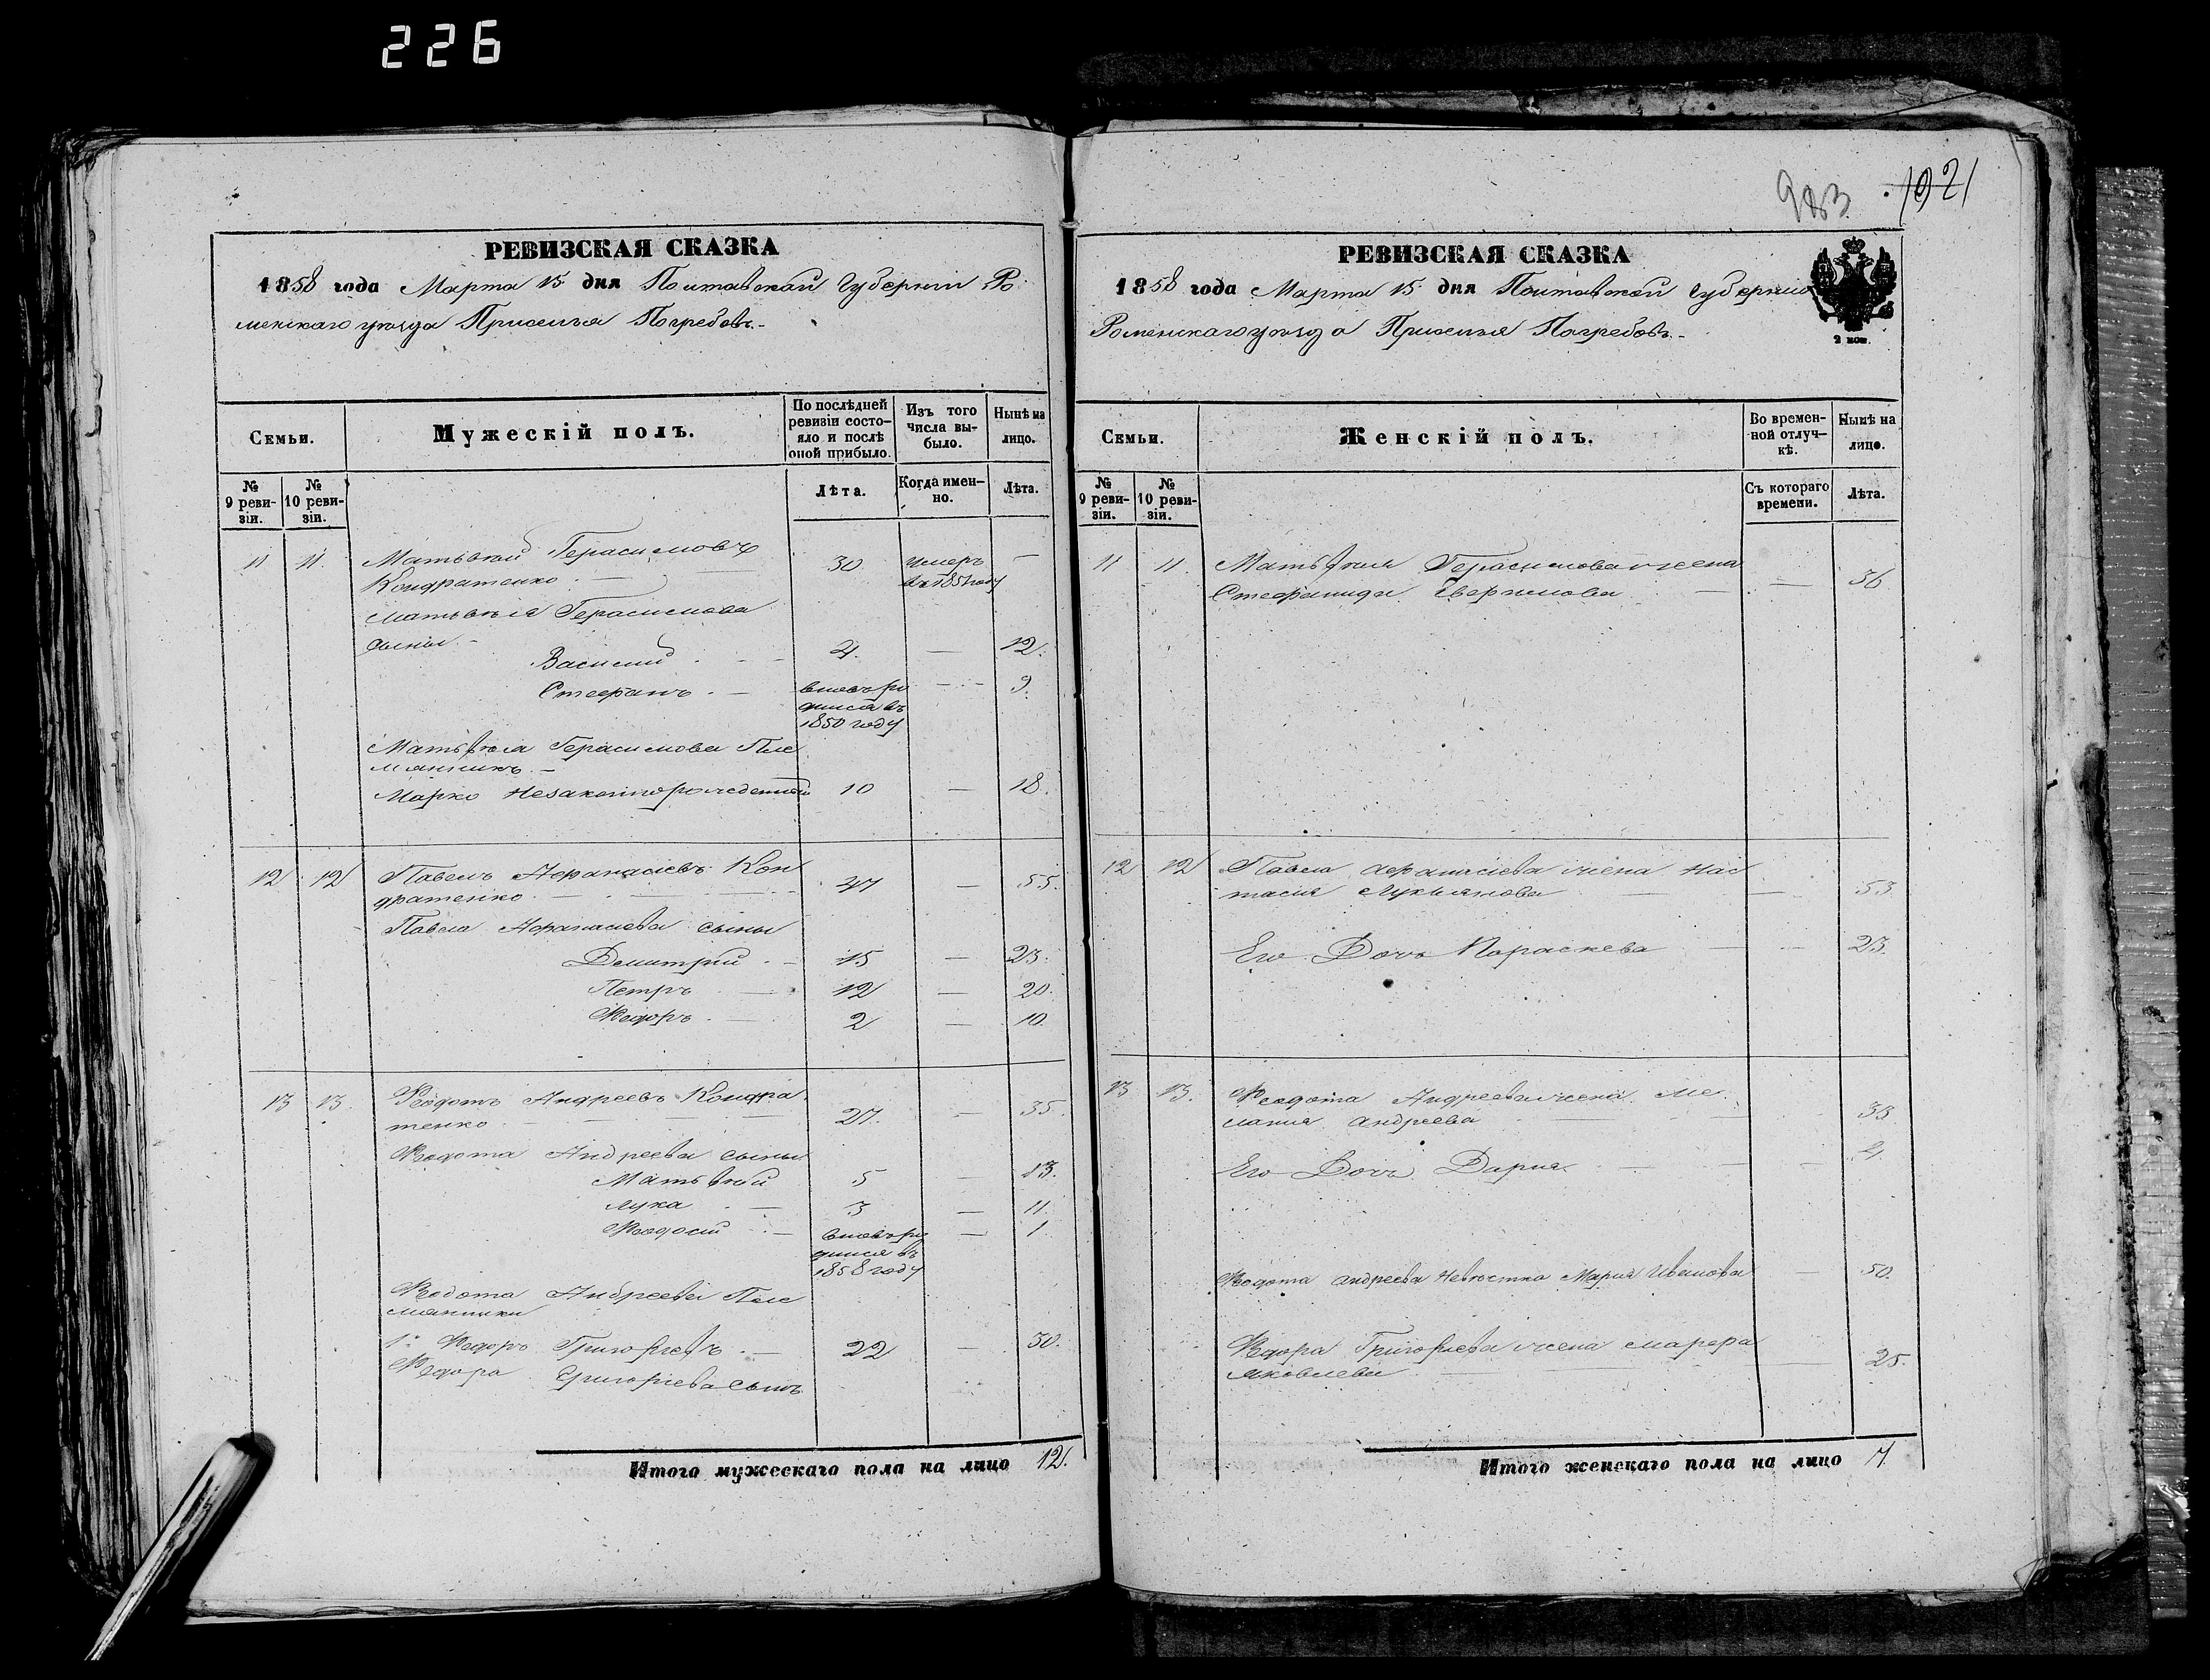 226
983 1021
РЕВИЗСКАЯ СКАЗКА
1858 года Марта 15 дня Полтавской Губерніи Ро
менскаго уѣзда Приселья Погребовъ.-
Семьи.
Мужескій полъ.
По послѣдней
ревизіи состо-
яло и послѣ
оной прибыло.
Изъ того
числа вы-
было.
Нынѣ на
лицо.
№
9 реви-
зіи.
№
10 реви-
зіи.
Лѣта.
Когда имен-
но.
Лѣта.
11 11. Матвѣй Герасимовъ 30 умеръ -
Кондратенко въ 1851 году
Матвѣя Герасимова
сыны -
Василий 4. - 12.
Стефанъ - вновь ро - 9.
дился въ
1850 году
Матвѣя Герасимова Пле
мянникъ -
Марко Незаконнорожденный 10 - 18.
12 12 Павелъ Афанасіевъ Кон 47 - 55.
дратенко
Павла Афанасіева сыны
Димитрій 15 - 23.
Петръ 12 - 20.
Федоръ 2 - 10.
13 13. Федотъ Андреевъ Кондра 27. - 35.
тенко
Федота Андреева сыны
Матвѣй 5 - 13.
Лука 3 - 11.
Феодосій вновь ро - 1
дился въ
1858 году
Федота Андреева Пле
мянники
1й Федоръ Григорьевъ 22 - 30.
Федора Григоріева сынъ
Итого мужескаго пола на лицо 12.
РЕВИЗСКАЯ СКАЗКА
1858 года Марта 15 дня Полтавской Губерніи
Роменскаго уѣзда Приселья Погребовъ.-
2 коп.
Семьи.
Женскій полъ.
Во времен-
ной отлуч-
кѣ.
Нынѣ на
лицо.
№
9 реви-
зіи.
№
10 реви-
зіи.
Съ котораго
времени.
Лѣта.
11 11. Матвѣя Герасимова жена - 36
Стефанида
12 12 Павла Афанасіева жена Нас
тасія Лукьянова - 53
Его Дочь Параскева - 23.
13 13. Федота Андреева жена Ме
ланія Андреева 33
Его Дочь Дарья - 4
Федота Андреева Невѣстка Марья Иванова - 50.
Федора Григоріева жена Марфа
Яковлева - 25.
Итого женскаго пола на лицо 7.